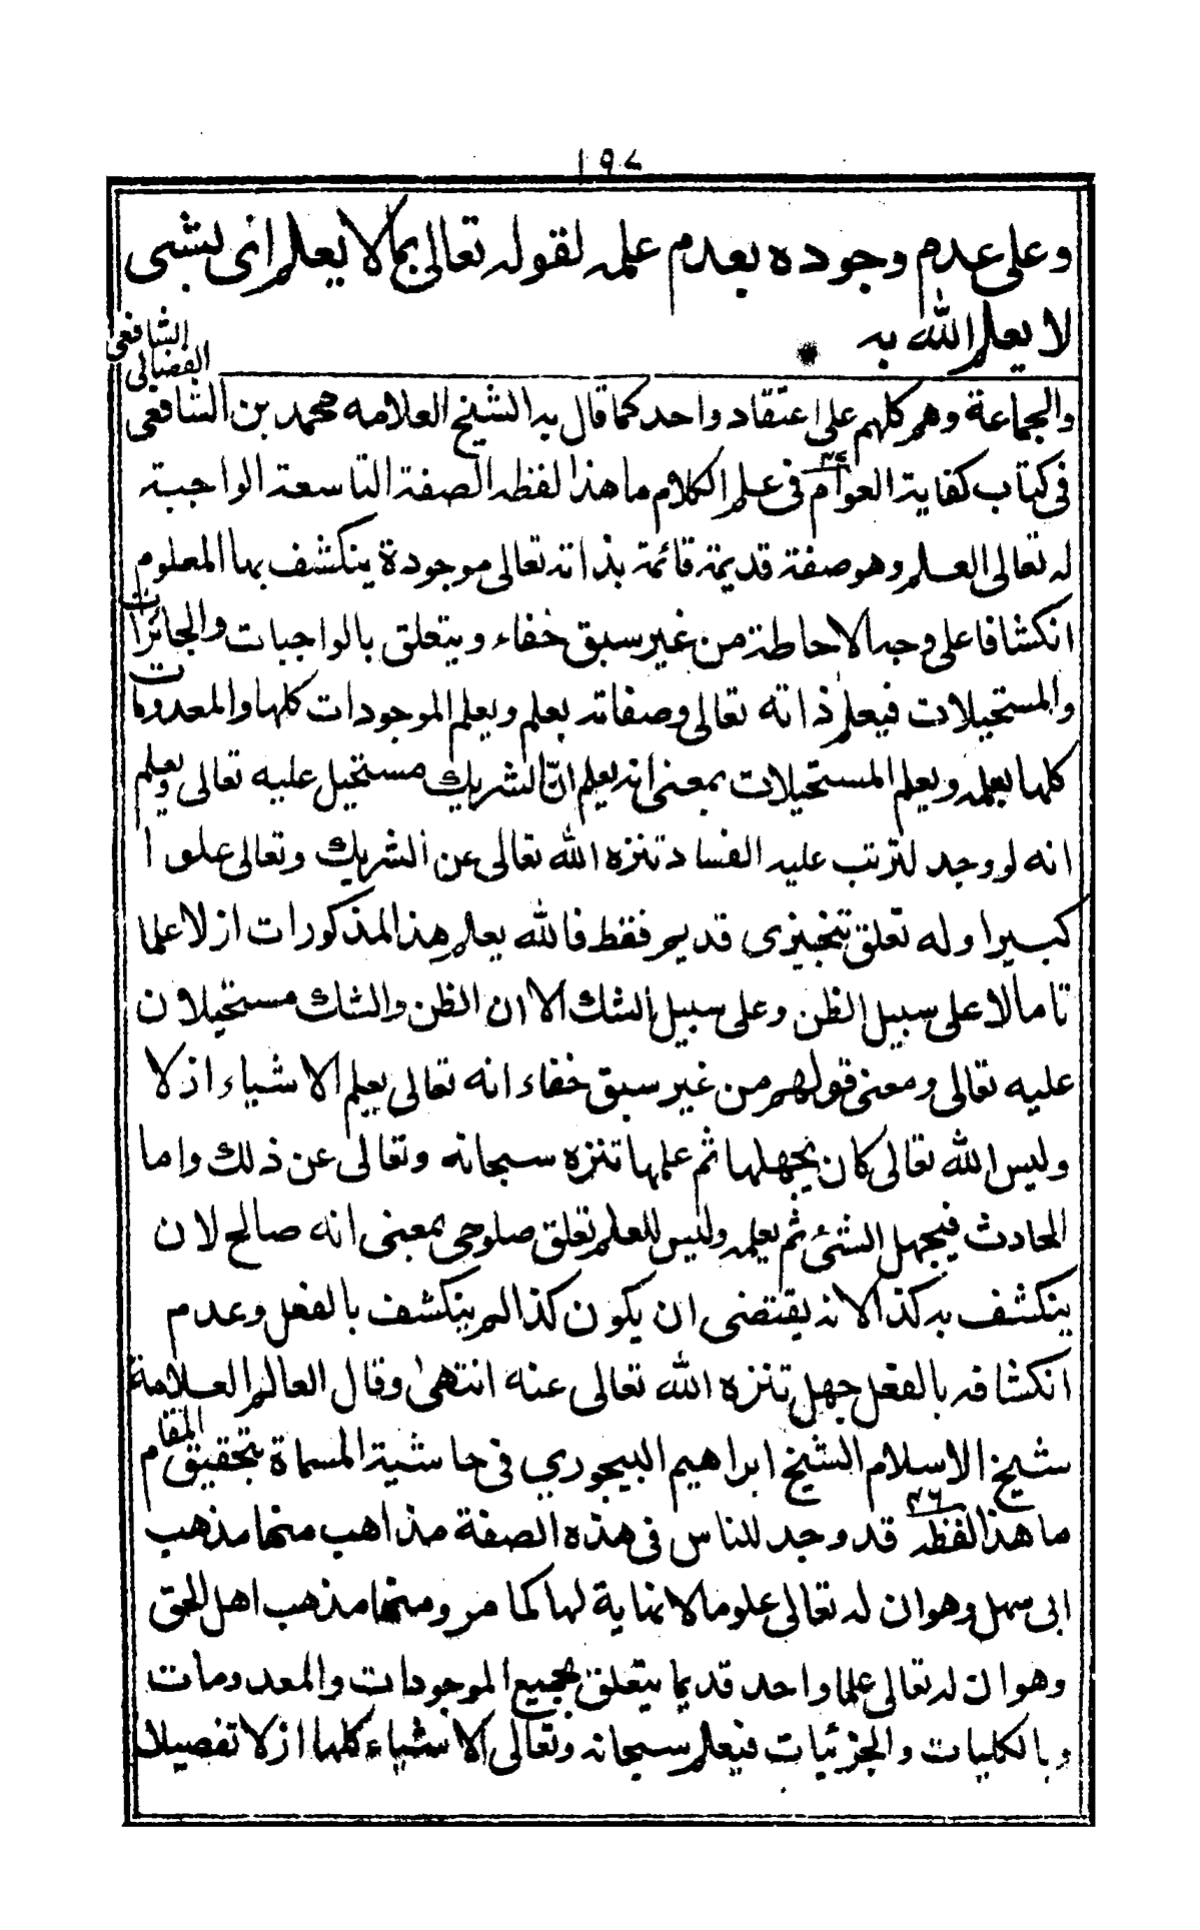 ١٩٨
وعلى عدم وجوده بعدم علمه لقوله تعالى بما لا يعلم اى بشى
لا يعلم الله به
والجماعة وهم كلهم على اعتقاد واحد كما قال به الشيخ العلامه محمد بن الشافعى الفضالى الشافعى
فى كتاب كفاية العوام فى علم الكلام ما هذا لفظه الصفة التاسعة الواجبة
له تعالى العلم وهو صفة قديمة قائمة بذاته تعالى موجودة ينكشف بها المعلوم
انكشافا على وجه الاحاطة من غير سبق خفاء ويتعلق بالواجبات والجائزات
والمستحيلات فيعلم ذاته تعالى وصفاته بعلم ويعلم الموجودات كلها والمعدومات
كلها بعلمه ويعلم المستحيلات بمعنى انه يعلم انّ الشريك مستحيل عليه تعالى ويعلم
انه لو وجد لترتب عليه الفساد تنزه الله تعالى عن الشريك وتعالى علوا
كبيرا وله تعلق تنجيزى قديم فقط فالله يعلم هذ المذكورات ازلا علما
تاما لا على سبيل الظن وعلى سبيل الشك الا ان الظن والشك مستحيلان
عليه تعالى ومعنى قولهم من غير سبق خفاء انه تعالى يعلم الاشياء ازلا
وليس الله تعالى كان يجهلها ثم علمها تنزه سبحانه وتعالى عن ذلك واما
الحادث فيجهل الشئ ثم يعلمه وليس للعلم تعلق صلوحى بمعنى انه صالح لان
ينكشف به كذا لانه يقتضى ان يكون كذا لم ينكشف بالفعل وعدم
انكشافه بالفعل جهل تنزه الله تعالى عنه انتهى وقال العالم العلامة
شيخ الاسلام الشيخ ابراهيم البيجوري فى حاشية المسماة بتحقيق المقام
ما هذا لفظه قد وجد للناس فى هذه الصفة مذاهب منها مذهب
ابى سهل وهو ان له تعالى علوما لا نهاية لها كما مر ومنها مذهب اهل الحق
وهو ان له تعالى علما واحد قديما يتعلق بجميع الموجودات والمعدومات
وبالكليات والجزئيات فيعلم سبحانه وتعالى الاشياء كلها ازلا تفصيلا